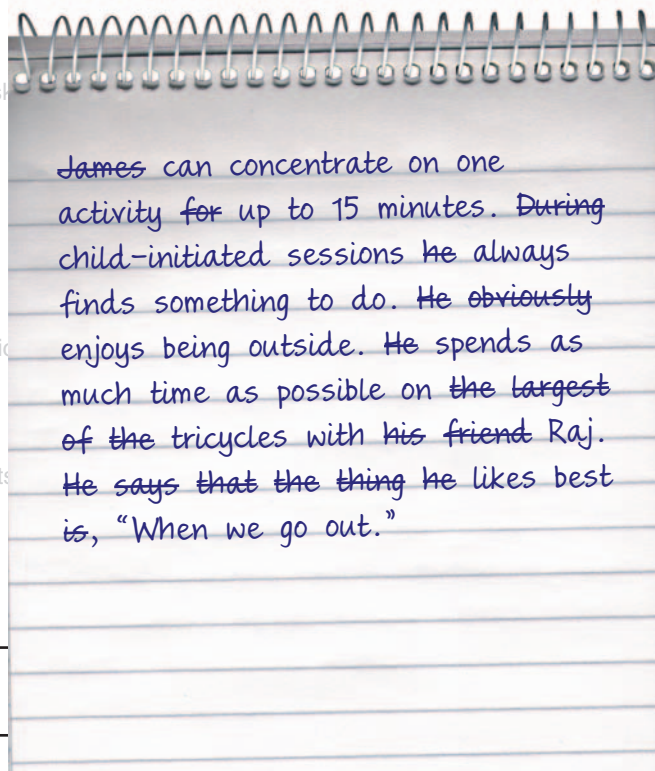 James can concentrate on one
activity for up to 15 minutes. During
child-initiated sessions he always
finds something to do. He obviously
enjoys being outside. He spends as
much time as possible on the largest
of the tricycles with his friend Raj.
He says that the thing he likes best
is, “When we go out.”